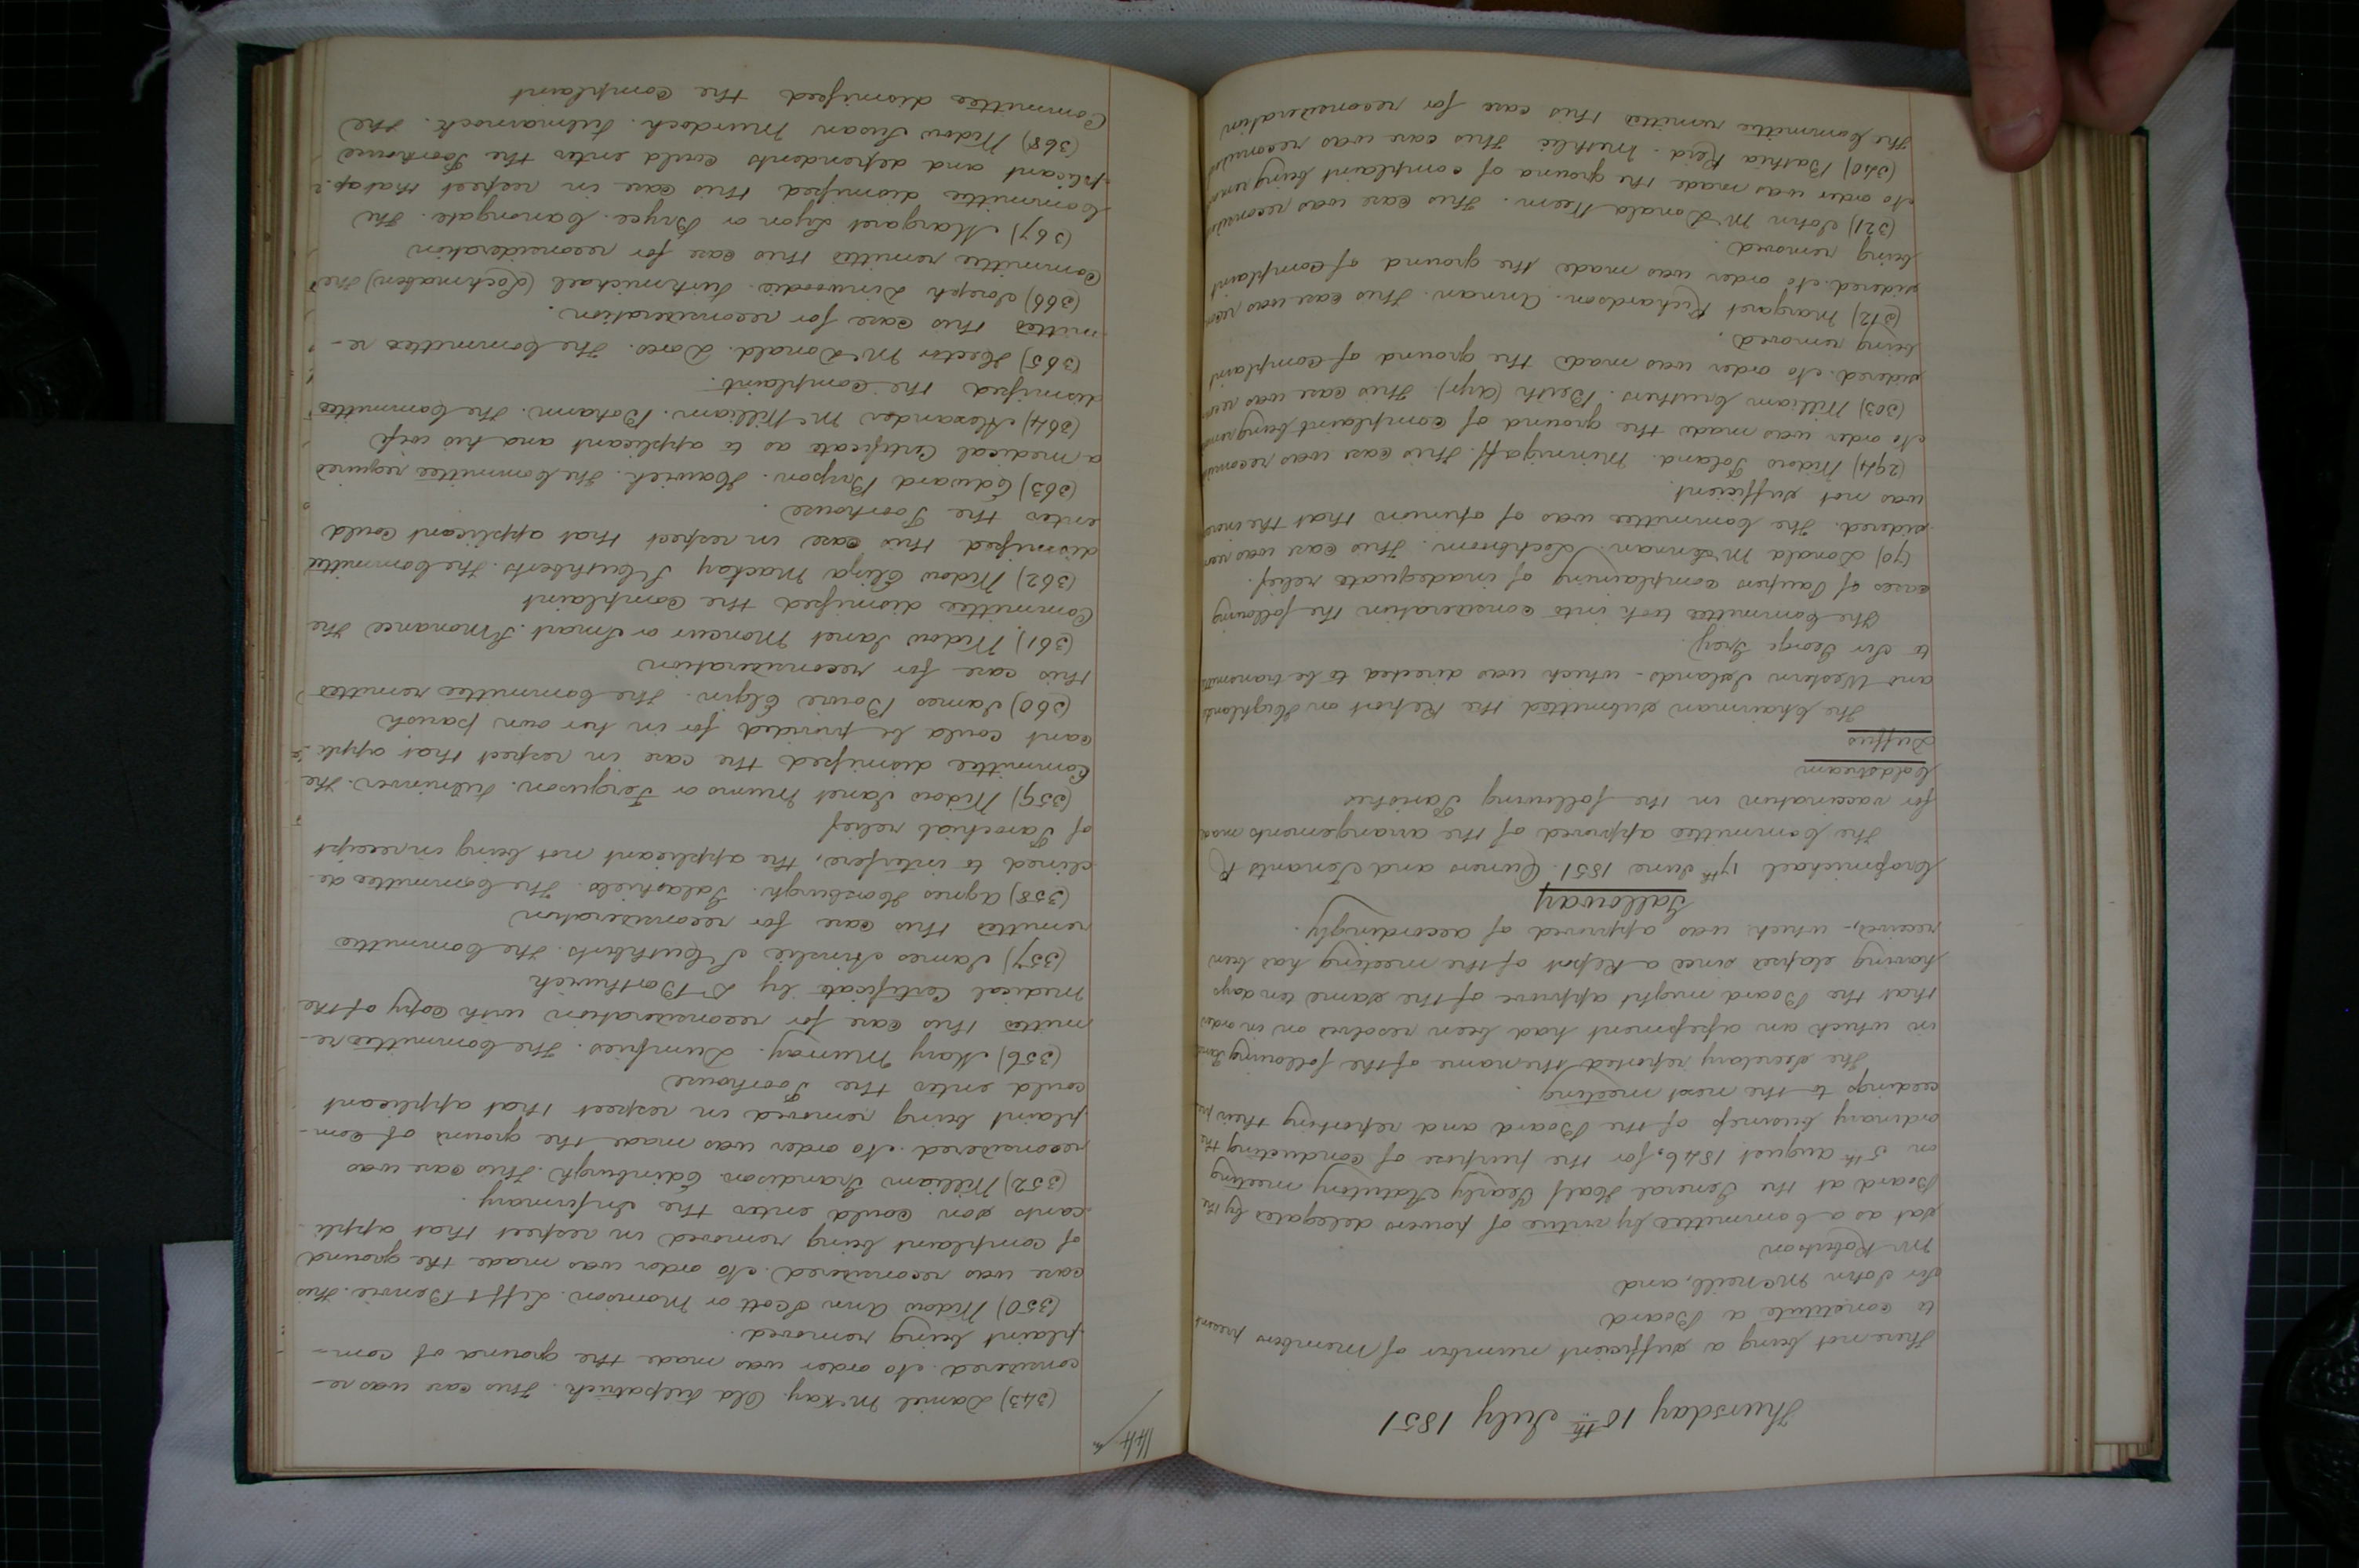 Thursday 10th July 1851
There not being a sufficient number of Members present
to constitute a Board
Sir John McNeill, and
Mr Robertson
sat as a Committee by virtue of powers delegated by the
Board at the General Half Yearly Statutory meeting
on 5th August 1846, for the purpose of conducting the
ordinary business of the Board and reporting their pro
ceedings to the next meeting.
The Secretary reported the name of the following
in which an assessment had been resolved on in order
that the Board might approve of the same ten days
having elapsed since a Report of the meeting had been
received, - which was approved of accordingly.
Galloway
Crossmichael 17th June 1851. Owners and Tenants R
The Committee approved of the arrangements made
for vaccination in the following Parishes
Coldstream
Duffus
The Chairman submitted the Report on Highlands
and Western Islands - which was directed to be transmitted
to Sir George Grey.
The Committee took into consideration the following
cases of Paupers complaining of inadequate relief.
(70) Donald McLennan. Lochbroom. This case was recon
sidered. The Committee was of opinion that the increase
was not sufficient.
(294) Widow Toland. Minnigaff. This case was reconsidered
No order was made the ground of complaint being removed
(303) William Cruthers. Beith (Ayr) This case was recon
sidered. No order was made the ground of complaint
being removed.
(312) Margaret Richardson. Annan. This case was recon
sidered. No order was made the ground of complaint
being removed.
(321) John McDonald Weem. This case was reconsidered
No order was made the ground of complaint being removed
(340) Bathia Reid. Methlic. This case was reconsidered
The Committee remitted this case for reconsideration
144
(343) Daniel McKay. Old Kilpatrick. This case was re-
considered. No order was made the ground of com-
plaint being removed.
(350) Widow Ann Scott or Morrison. Liff & Benvie. This
case was reconsidered. No order was made the ground
of complaint being removed in respect that appli-
cants son could enter the Infirmary.
(352) William Grandison Edinburgh. This case was
reconsidered. No order was made the ground of com-
plaint being removed in respect that applicant
could enter the Poorhouse
(356) Mary Murray. Dumfries. The Committee re-
mitted this case for reconsideration with copy of the
medical Certificate by Dr Borthwick
(357) James Ainslie St Cuthberts. The Committee
remitted this case for reconsideration
(358) Agnes Horsburgh. Galashiels. The Committee de-
clined to interfere, the applicant not being in receipt
of Parochial relief
(359) Widow Janet Munro or Ferguson. Kilninver. The
Committee dismissed the case in respect that appli-
cant could be provided for in her own parish
(360) James Bowie Elgin. The Committee remitted
this case for reconsideration
(361) Widow Janet Moncur or Smart. St Monance The
Committee dismissed the complaint
(362) Widow Eliza Mackay St Cuthberts. The Committee
dismissed this case in respect that applicant could
enter the Poorhouse.
(363) Edward Bryson. Hawick. The Committee required
a medical Certificate as to applicant and his wife
(364) Alexander McWilliam. Boharm. The Committee
dismissed the complaint.
(365) Hector McDonald. Dores. The Committee re-
mitted this case for reconsideration.
(366) Joseph Dinwoodie. Kirkmichael (Lochmaben) The
Committee remitted this case for reconsideration
(367) Margaret Lyon or Bryce. Canongate. The
Committee dismissed this case in respect that ap-
plicant and dependents could enter the Poorhouse
(368) Widow Susan Murdoch. Kilmarnock. The
Committee dismissed the Complaint